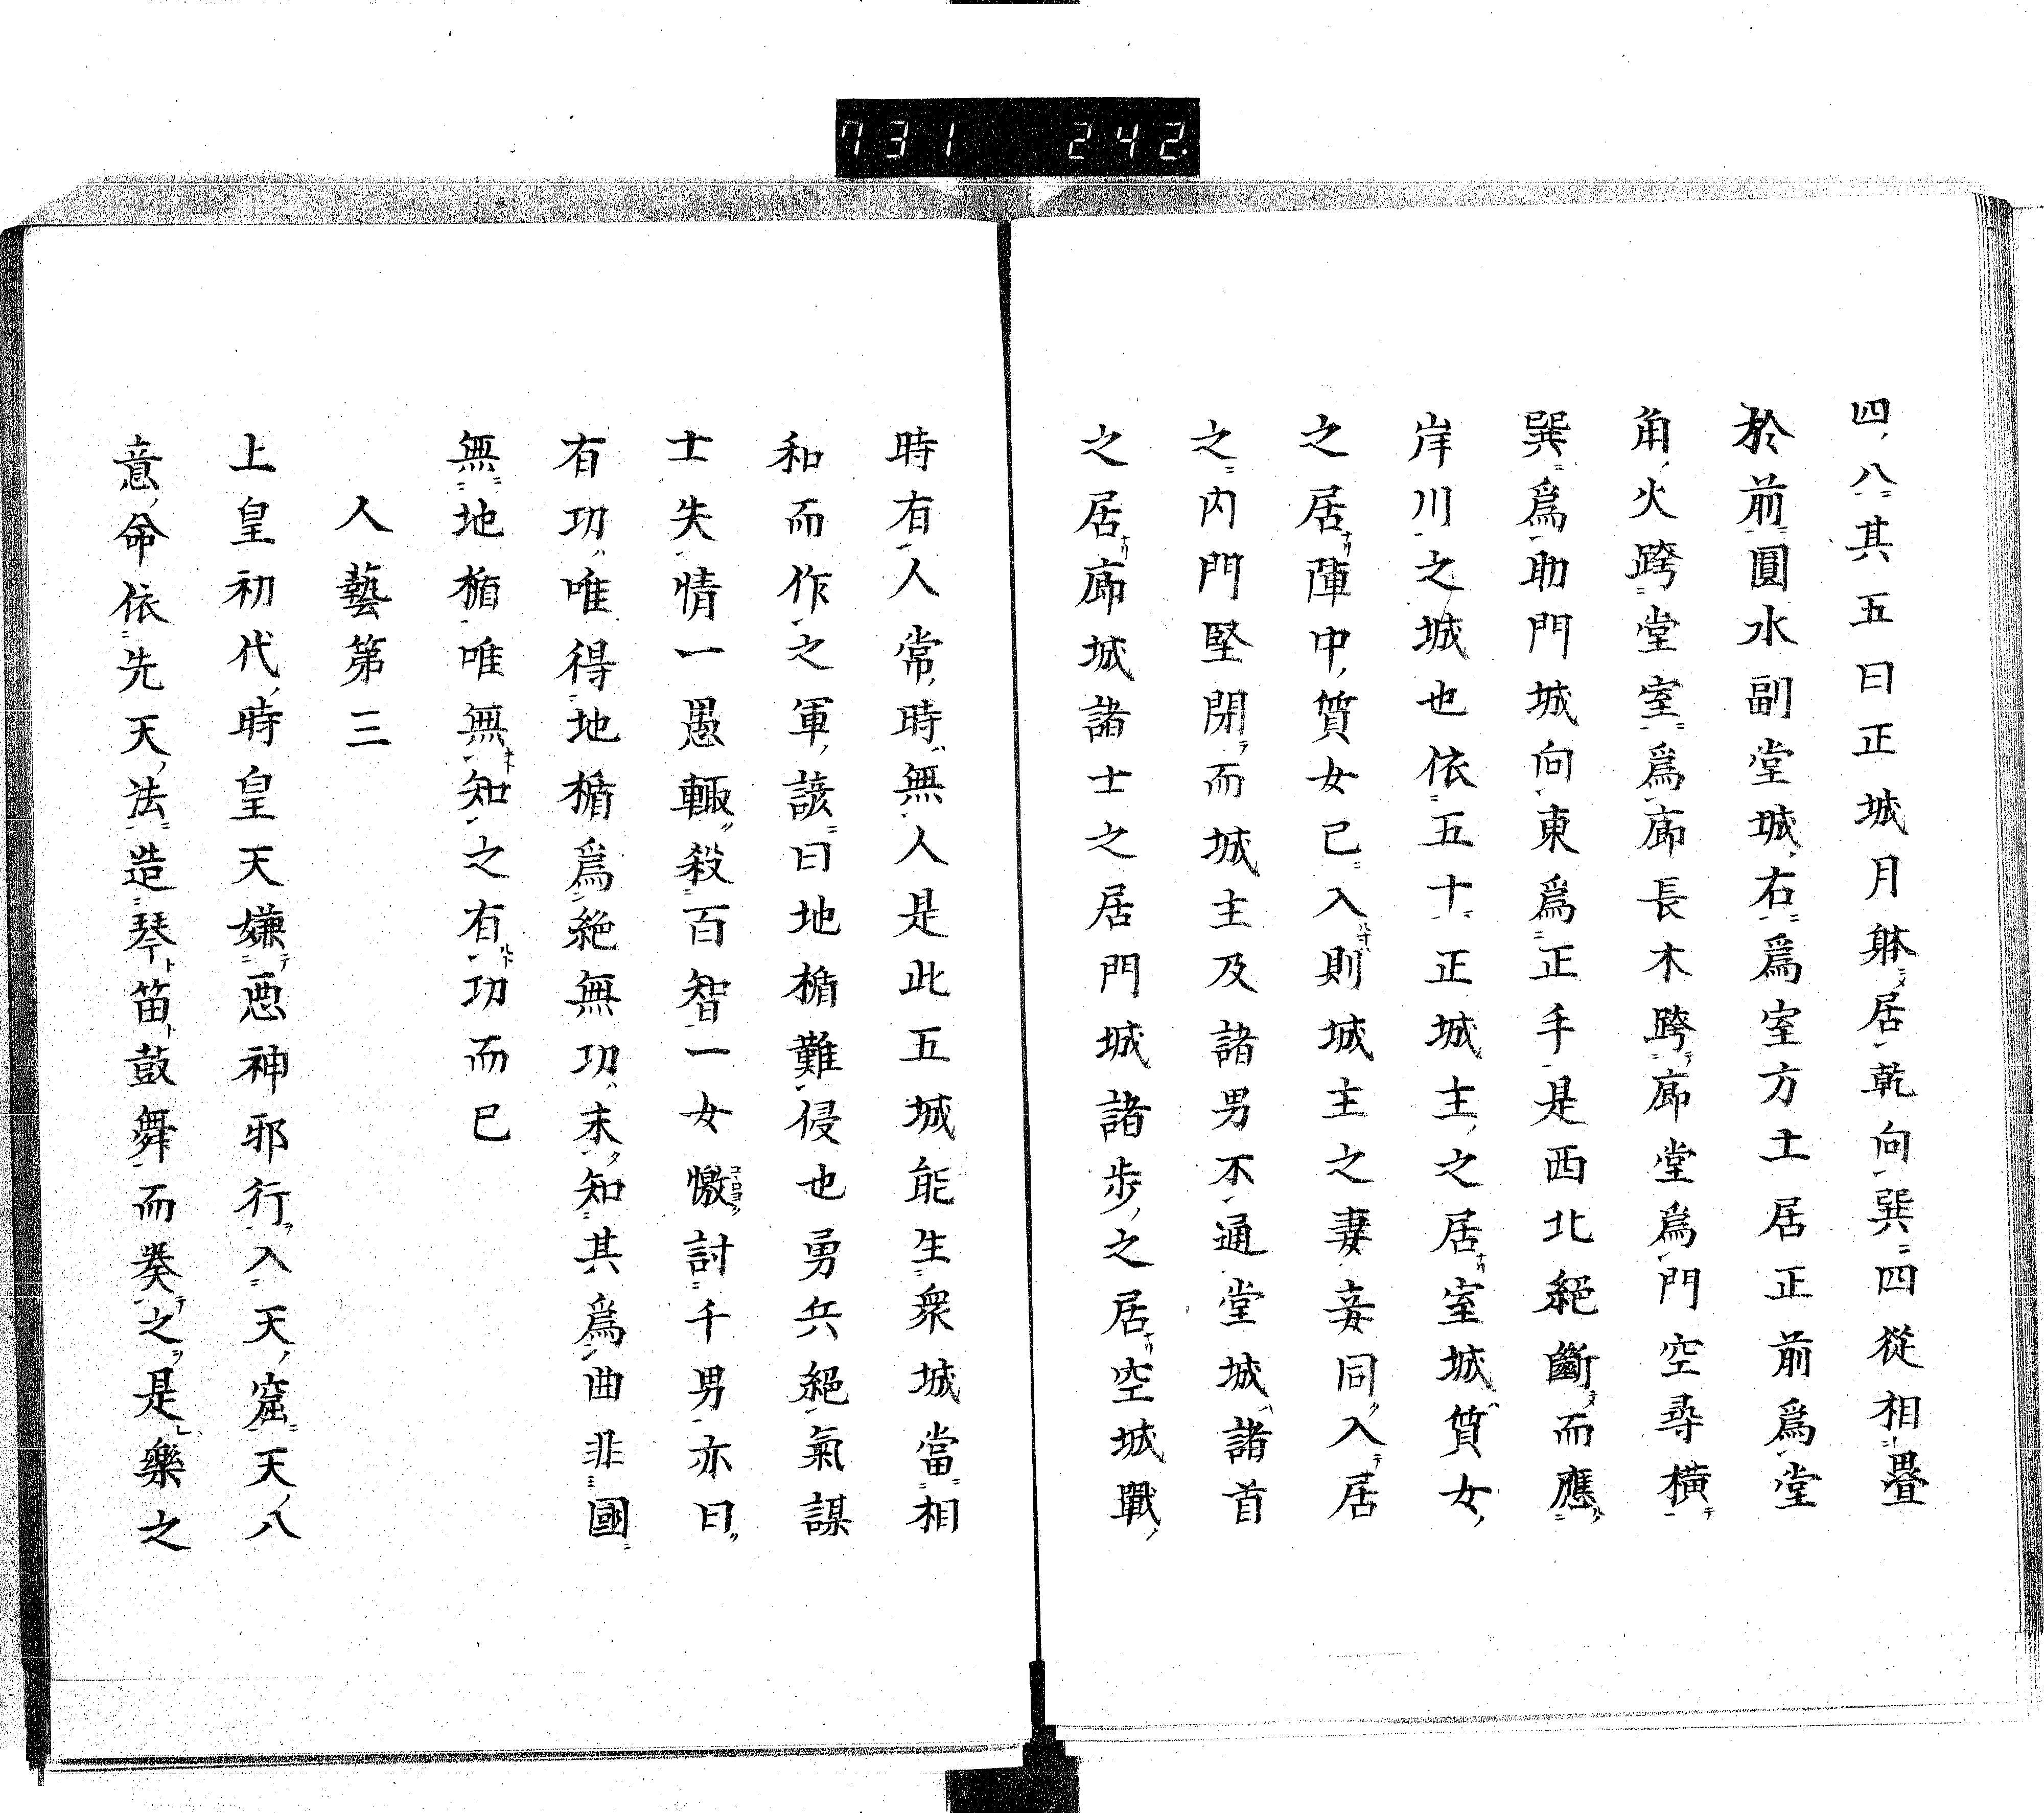 731 242
四八其五曰正城月躰居乾向巽四從相疊
於前圓水副堂城右爲室方土居正前爲堂
角火跨堂室爲廊長木跨廊堂爲門空尋横
巽爲助門城向東爲正手是西北絕斷而應
岸川之城也依五十正城主之居室城質女
之居陣中質女已入則城主之妻妾同入居
之内門堅閉而城主及諸男不通堂城諸首
之居廊城諸士之居門城諸步之居空城戰
時有人常時無人是此五城能生衆城當相
和而作之軍諺曰地楯難侵也勇兵絕氣謀
士失情一愚輙殺百智一女憿討千男亦曰
有功唯得地楯爲絕無功末知其爲曲非國
無地楯唯無知之有功而已
人藝第三
上皇初代時皇天嫌惡神邪行入天窟天八
意命依先天法造琴笛鼓舞而奏之是樂之